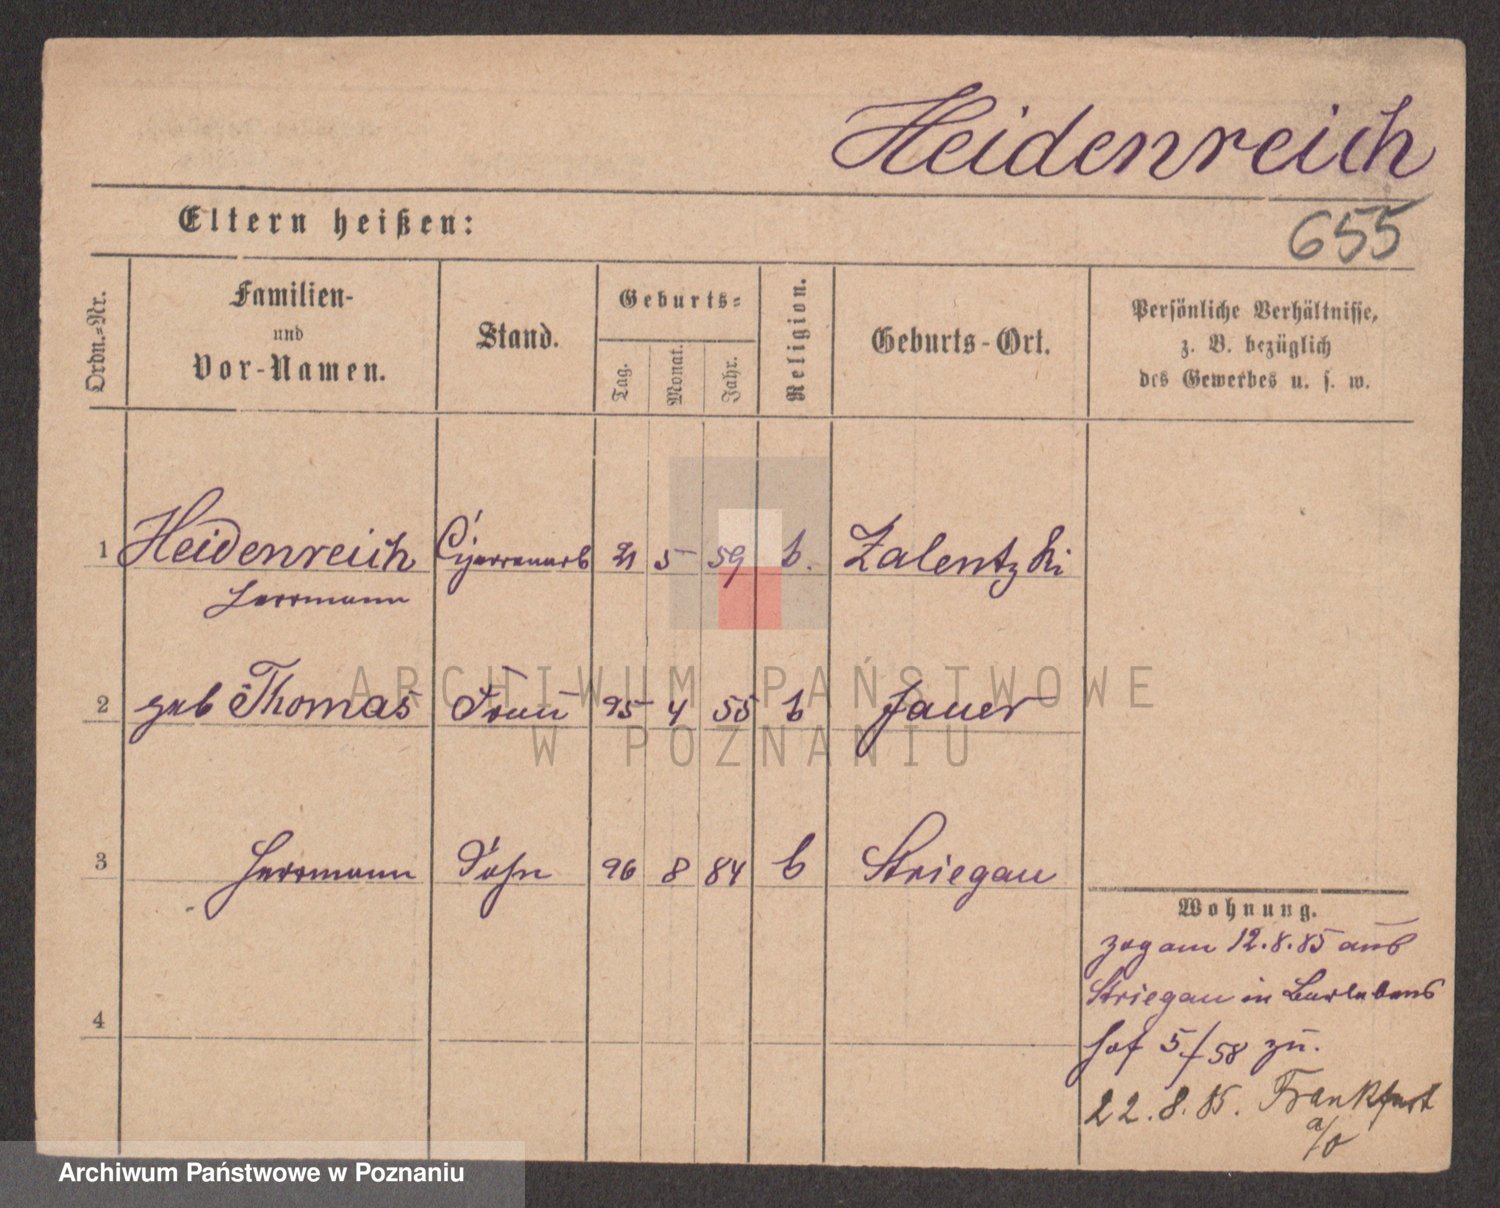 Heidenreich
Eltern heißen:
655
Ordn.-Nr.
Familien-
und
Vor-Namen.
Stand.
Geburts-
Tag.
Monat.
Jahr.
Religion.
Geburts-Ort.
Persönliche Verhältnisse,
z. B. bezüglich
des Gewerbes u. s. w.
1 Heidenreich Cigarrenarb 21 5 59 b. Zalentzki
Herrmann
2 geb Thomas Frau 25 4 55 b Jauer
3 Herrmann Sohn 26 8 84 b Striegau
Wohnung.
zog am 12.8.85 aus
Striegau in
hof 5/58 zu.
4
22.8.85. Frankfurt
a/o
ARCHIWUM PAŃSTWOWE
W POZNANIU
Archiwum Państwowe w Poznaniu